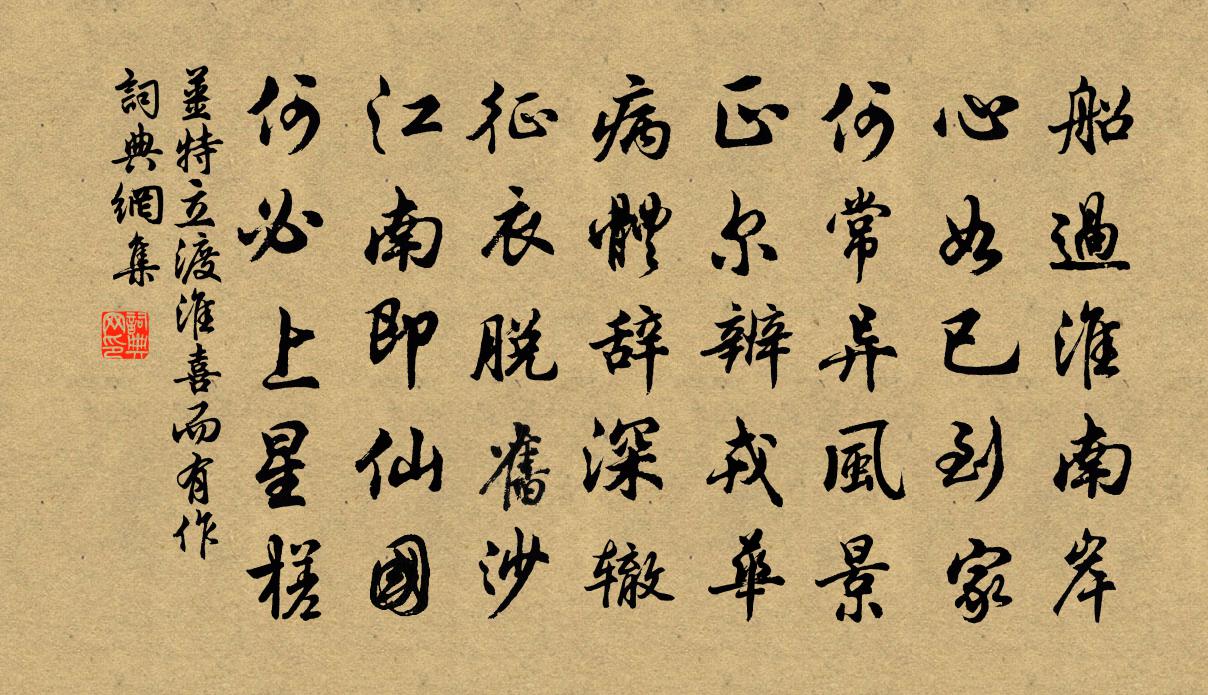 船過淮南岸
心如已到家
何常异風景
正尔辨戎華
病體辞深辙
征衣脱舊沙
江南即仙國
何必上星槎
薑特立渡淮喜而有作
詞典網集
詞典网印